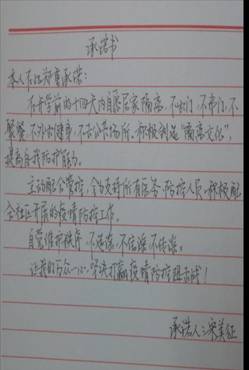 承诺书
本人在此郑重承诺:
不开学前的十四天内自愿居家隔离,不出门、不串门、不
聚餐、不外出健身、不去公共场所、积极创造"隔离文化",
提高自我防护能力。
主动配合管控,全力支持所有医务、防控人员,积极配
合社区开展的疫情防控工作。
自觉维护秩序,不造谣、不信谣、不传谣。
让我们万众一心,坚决打赢疫情防控阻击战!
承诺人: